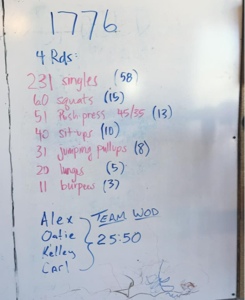 1776
4 Rds:
231 singles (58)
60 squats (15)
51 Push press 45/35 (13)
40 situps (10)
31 jumping pullups (8)
20 lunges (5)
11 burpees (3)
Alex TEAM WOD
Oatie 25:50
Kelley
Carl